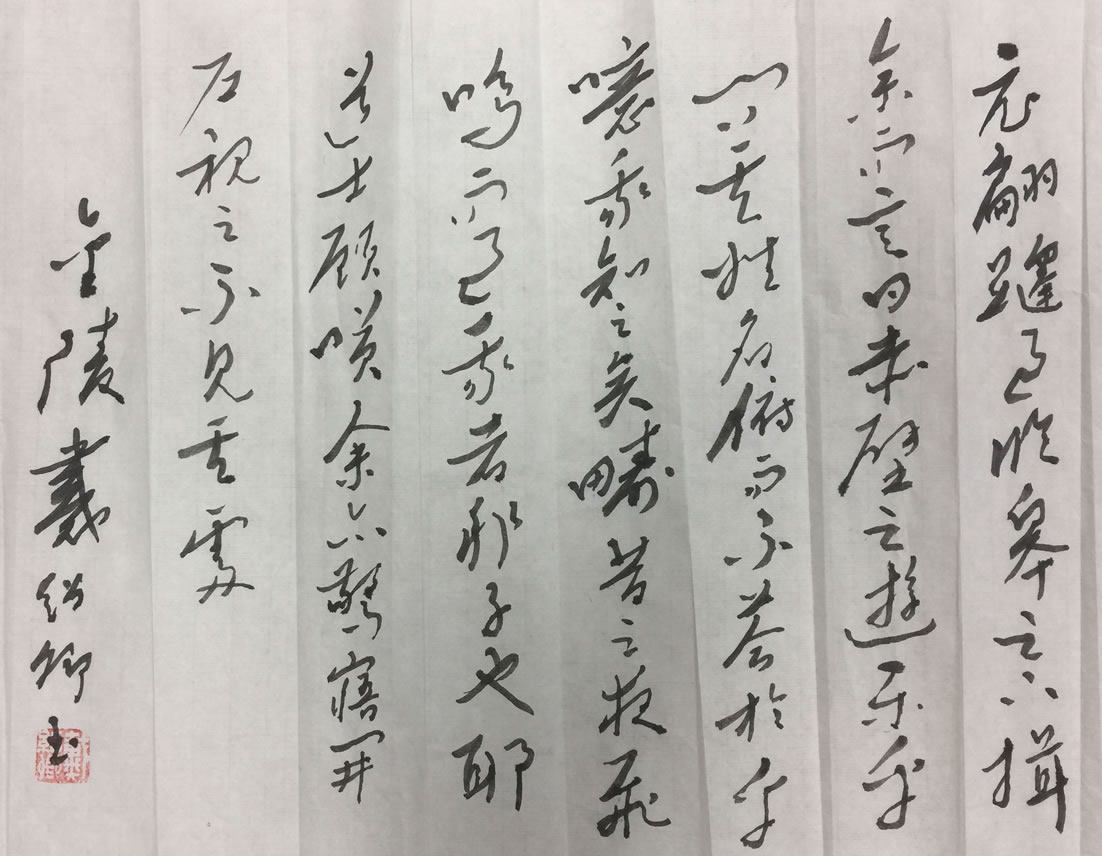 衣翩躚過臨皋之下揖
余而言曰赤壁之遊樂乎
問其姓名俯而不答於乎
噫我知之矣疇昔之夜飛
鳴而過我者非子也耶
道士顧咲余亦驚寤開
戶視之不見其處
金陵戴紹卿书